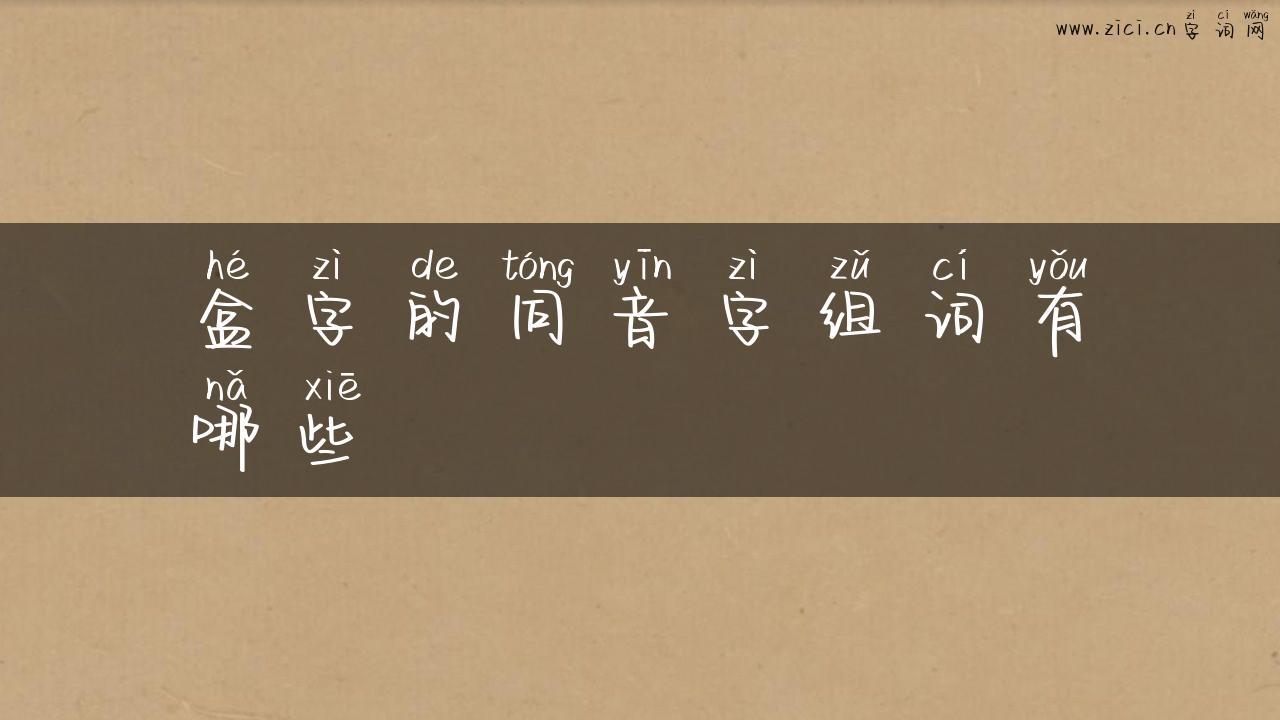 zì cí wǎng
www.zici.cn 字词网
hé zì de tóng yīn zì zǔ cí yǒu
盒字的同音字组词有
nǎ xiē
哪些